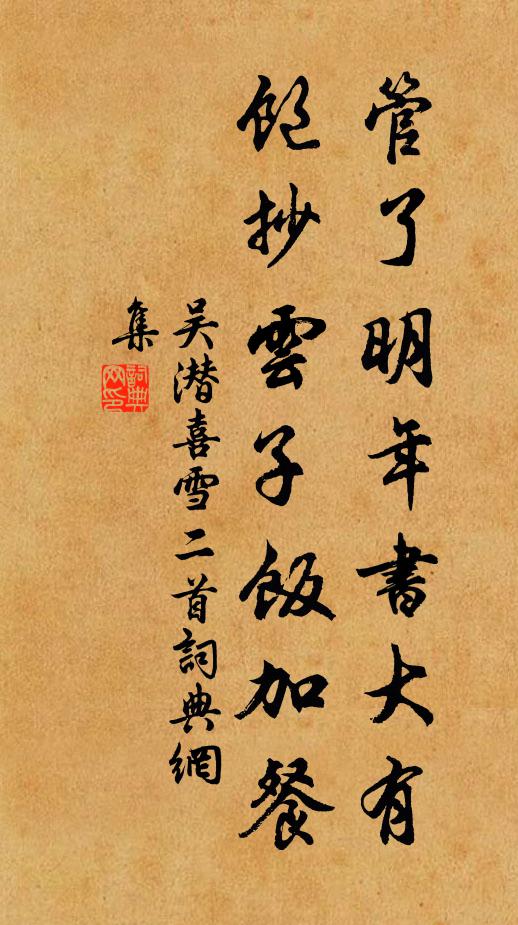 管了明年書大有
飽抄雲子飯加餐
吴潛喜雪二首詞典網
集
詞典網印